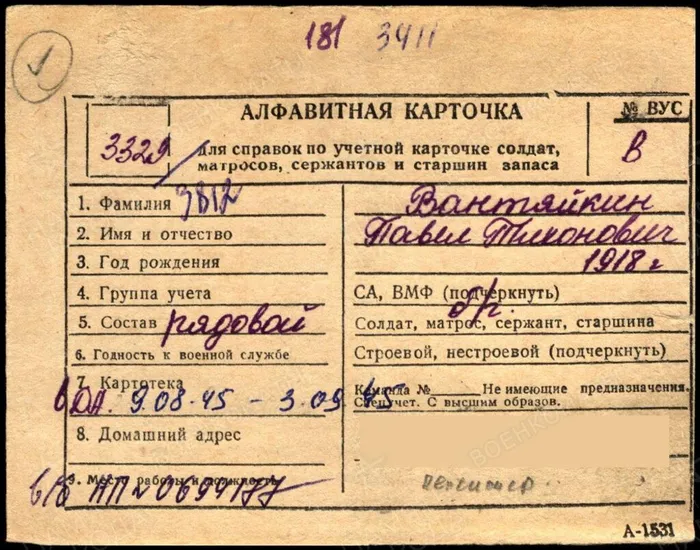 181 3411
1
АЛФАВИТНАЯ КАРТОЧКА
№ ВУС
3329
для справок по учетной карточке солдат,
матросов, сержантов и старшин запаса
В
3812
1. Фамилия Вантяйкин
2. Имя и отчество Павел Тихонович
3. Год рождения 1918 г
4. Группа учета
СА, ВМФ (подчеркнуть)
б/г.
5. Состав рядовой
Солдат, матрос, сержант, старшина
6. Годность к военной службе
Строевой, нестроевой (подчеркнуть)
7. Картотека
Команда № Не имеющие предназначения.
Спецучет. С высшим образов.
ДА. 9.08.45 - 3.09.45
8. Домашний адрес
9. Место работы и должность
в/б НП № 0699177
пенсионер
А-1531